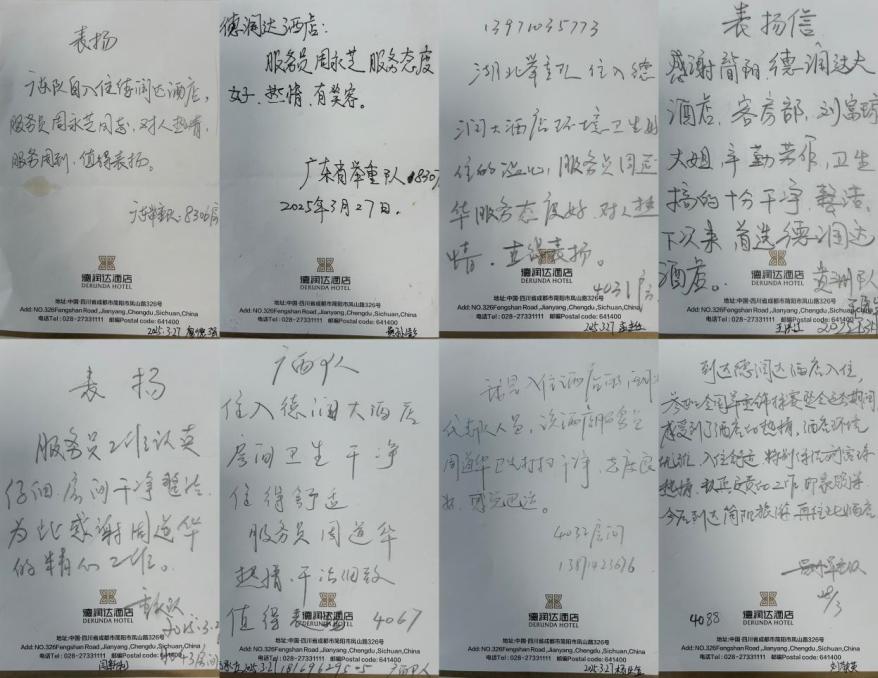 表扬
广东队自入住德润达酒店,
服务员周永芝同志,对人热情,
服务周到,值得表扬。
8306房
德润达酒店
DERUNDA HOTEL
地址:中国·四川省成都市简阳市凤山路326号
Add: NO.326Fengshan Road ,Jianyang,Chengdu,Sichuan,China
电话Tel : 028-27331111 邮编Postal code: 641400
2025.3.27
德润达酒店:
服务员周永芝服务态度
好、热情、有笑容。
广东省举重队 8307
2025年3月27日.
德润达酒店
DERUNDA HOTEL
地址:中国·四川省成都市简阳市凤山路326号
Add: NO.326Fengshan Road ,Jianyang,Chengdu,Sichuan,China
电话Tel : 028-27331111 邮编Postal code: 641400
13971035773
湖北举重队 住入德
润大酒店环境卫生
住的,服务员周道
华服务态度好.对人热
情.直得表扬。
4031房
德润达酒店
DERUNDA HOTEL
地址:中国·四川省成都市简阳市凤山路326号
Add: NO.326Fengshan Road ,Jianyang,Chengdu,Sichuan,China
电话Tel : 028-27331111 邮编Postal code: 641400
2025.3.27
表扬信
感谢简阳、德润达大
酒店、客房部,刘富琼
大姐,辛勤劳作,卫生
搞的十分干净、整洁,
下次来首选德润达
酒店。 贵州队
德润达酒店
DERUNDA HOTEL
地址:中国·四川省成都市简阳市凤山路326号
Add: NO.326Fengshan Road ,Jianyang,Chengdu,Sichuan,China
电话Tel : 028-27331111 邮编Postal code: 641400
表扬
服务员工作认真
仔细.房间干净整洁
为此感谢周道华
的精心工作。
德润达酒店
DERUNDA HOTEL
地址:中国·四川省成都市简阳市凤山路326号
Add: NO.326Fengshan Road ,Jianyang,Chengdu,Sichuan,China
电话Tel : 028-27331111 邮编Postal code: 641400
广西队
住入德润大酒店
房间卫生干净
住得舒适
服务员周道华
热情.干活细致
值得表扬 4067
德润达酒店
DERUNDA HOTEL
地址:中国·四川省成都市简阳市凤山路326号
Add: NO.326Fengshan Road ,Jianyang,Chengdu,Sichuan,China
电话Tel : 028-27331111 邮编Postal code: 641400
广西队
入住酒店
人员,该酒店服务员
周道华卫生打扫干净,态度良
好,
4032房间
德润达酒店
DERUNDA HOTEL
地址:中国·四川省成都市简阳市凤山路326号
Add: NO.326Fengshan Road ,Jianyang,Chengdu,Sichuan,China
电话Tel : 028-27331111 邮编Postal code: 641400
2025.3.27
到达德润达酒店入住,
参加全国举重锦标赛暨全运会期间
感受到了酒店的热情,酒店环境
优雅,入住舒适,特别
热情,认真负责的工作印象颇深
今后到达简阳旅游再住此酒店
4088
德润达酒店
DERUNDA HOTEL
地址:中国·四川省成都市简阳市凤山路326号
Add: NO.326Fengshan Road ,Jianyang,Chengdu,Sichuan,China
电话Tel : 028-27331111 邮编Postal code: 641400